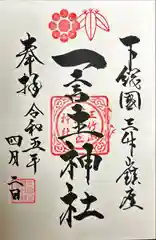 下総國三竹山鎮座
一言主神社
奉拝令和五年
四月二日